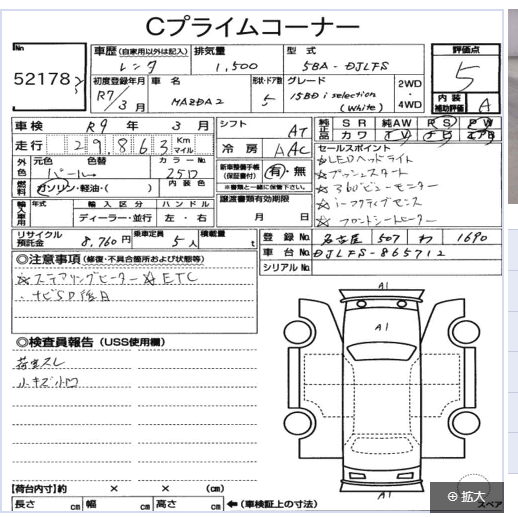 Cプライムコーナー
No
52178
車歴 (自家用以外は記入) 排気量 型式
レンタ 1,500 5BA-DJLFS
初度登録年月 車名 形状・ドア数 グレード 2WD ・ 4WD
R7/3月 MAZDA2 5 15BD i selection (White)
評価点
5
内装補助評価 A
車検 R9年 3月 シフト AT
走行 29,863 Km マイル 冷房 AAC
純正品 SR 純AW PS PW
カワ TV ナビ エアB
外色 元色 色替 カラーNo.
パール 25D
燃料 ガソリン・軽油・( ) 内装色
新車整備手帳 (保証書付) 有・無
※書類と一緒に保管下さい。
譲渡書類有効期限
月 日
セールスポイント
☆LEDヘッドライト
☆プッシュスタート
☆360°ビューモニター
☆i-アクティブセンス
☆フロントシートヒーター
輸入車用 年式 輸入区分 ハンドル
ディーラー・並行 左・右
リサイクル預託金 8,760円 乗車定員 5人 積載量 t
登録No. 名古屋 507 わ 1690
車台No. DJLFS-865712
シリアルNo.
◎注意事項 (修復・不具合箇所および状態等)
☆ステアリングヒーター ☆ETC
・ナビSD後日
◎検査員報告 (USS使用欄)
荷室スレ
小キズ小凹
A1
A1
A1
【荷台内寸】約 × × (cm)
長さ cm 幅 cm 高さ cm ←(車検証上の寸法)
スペア
拡大